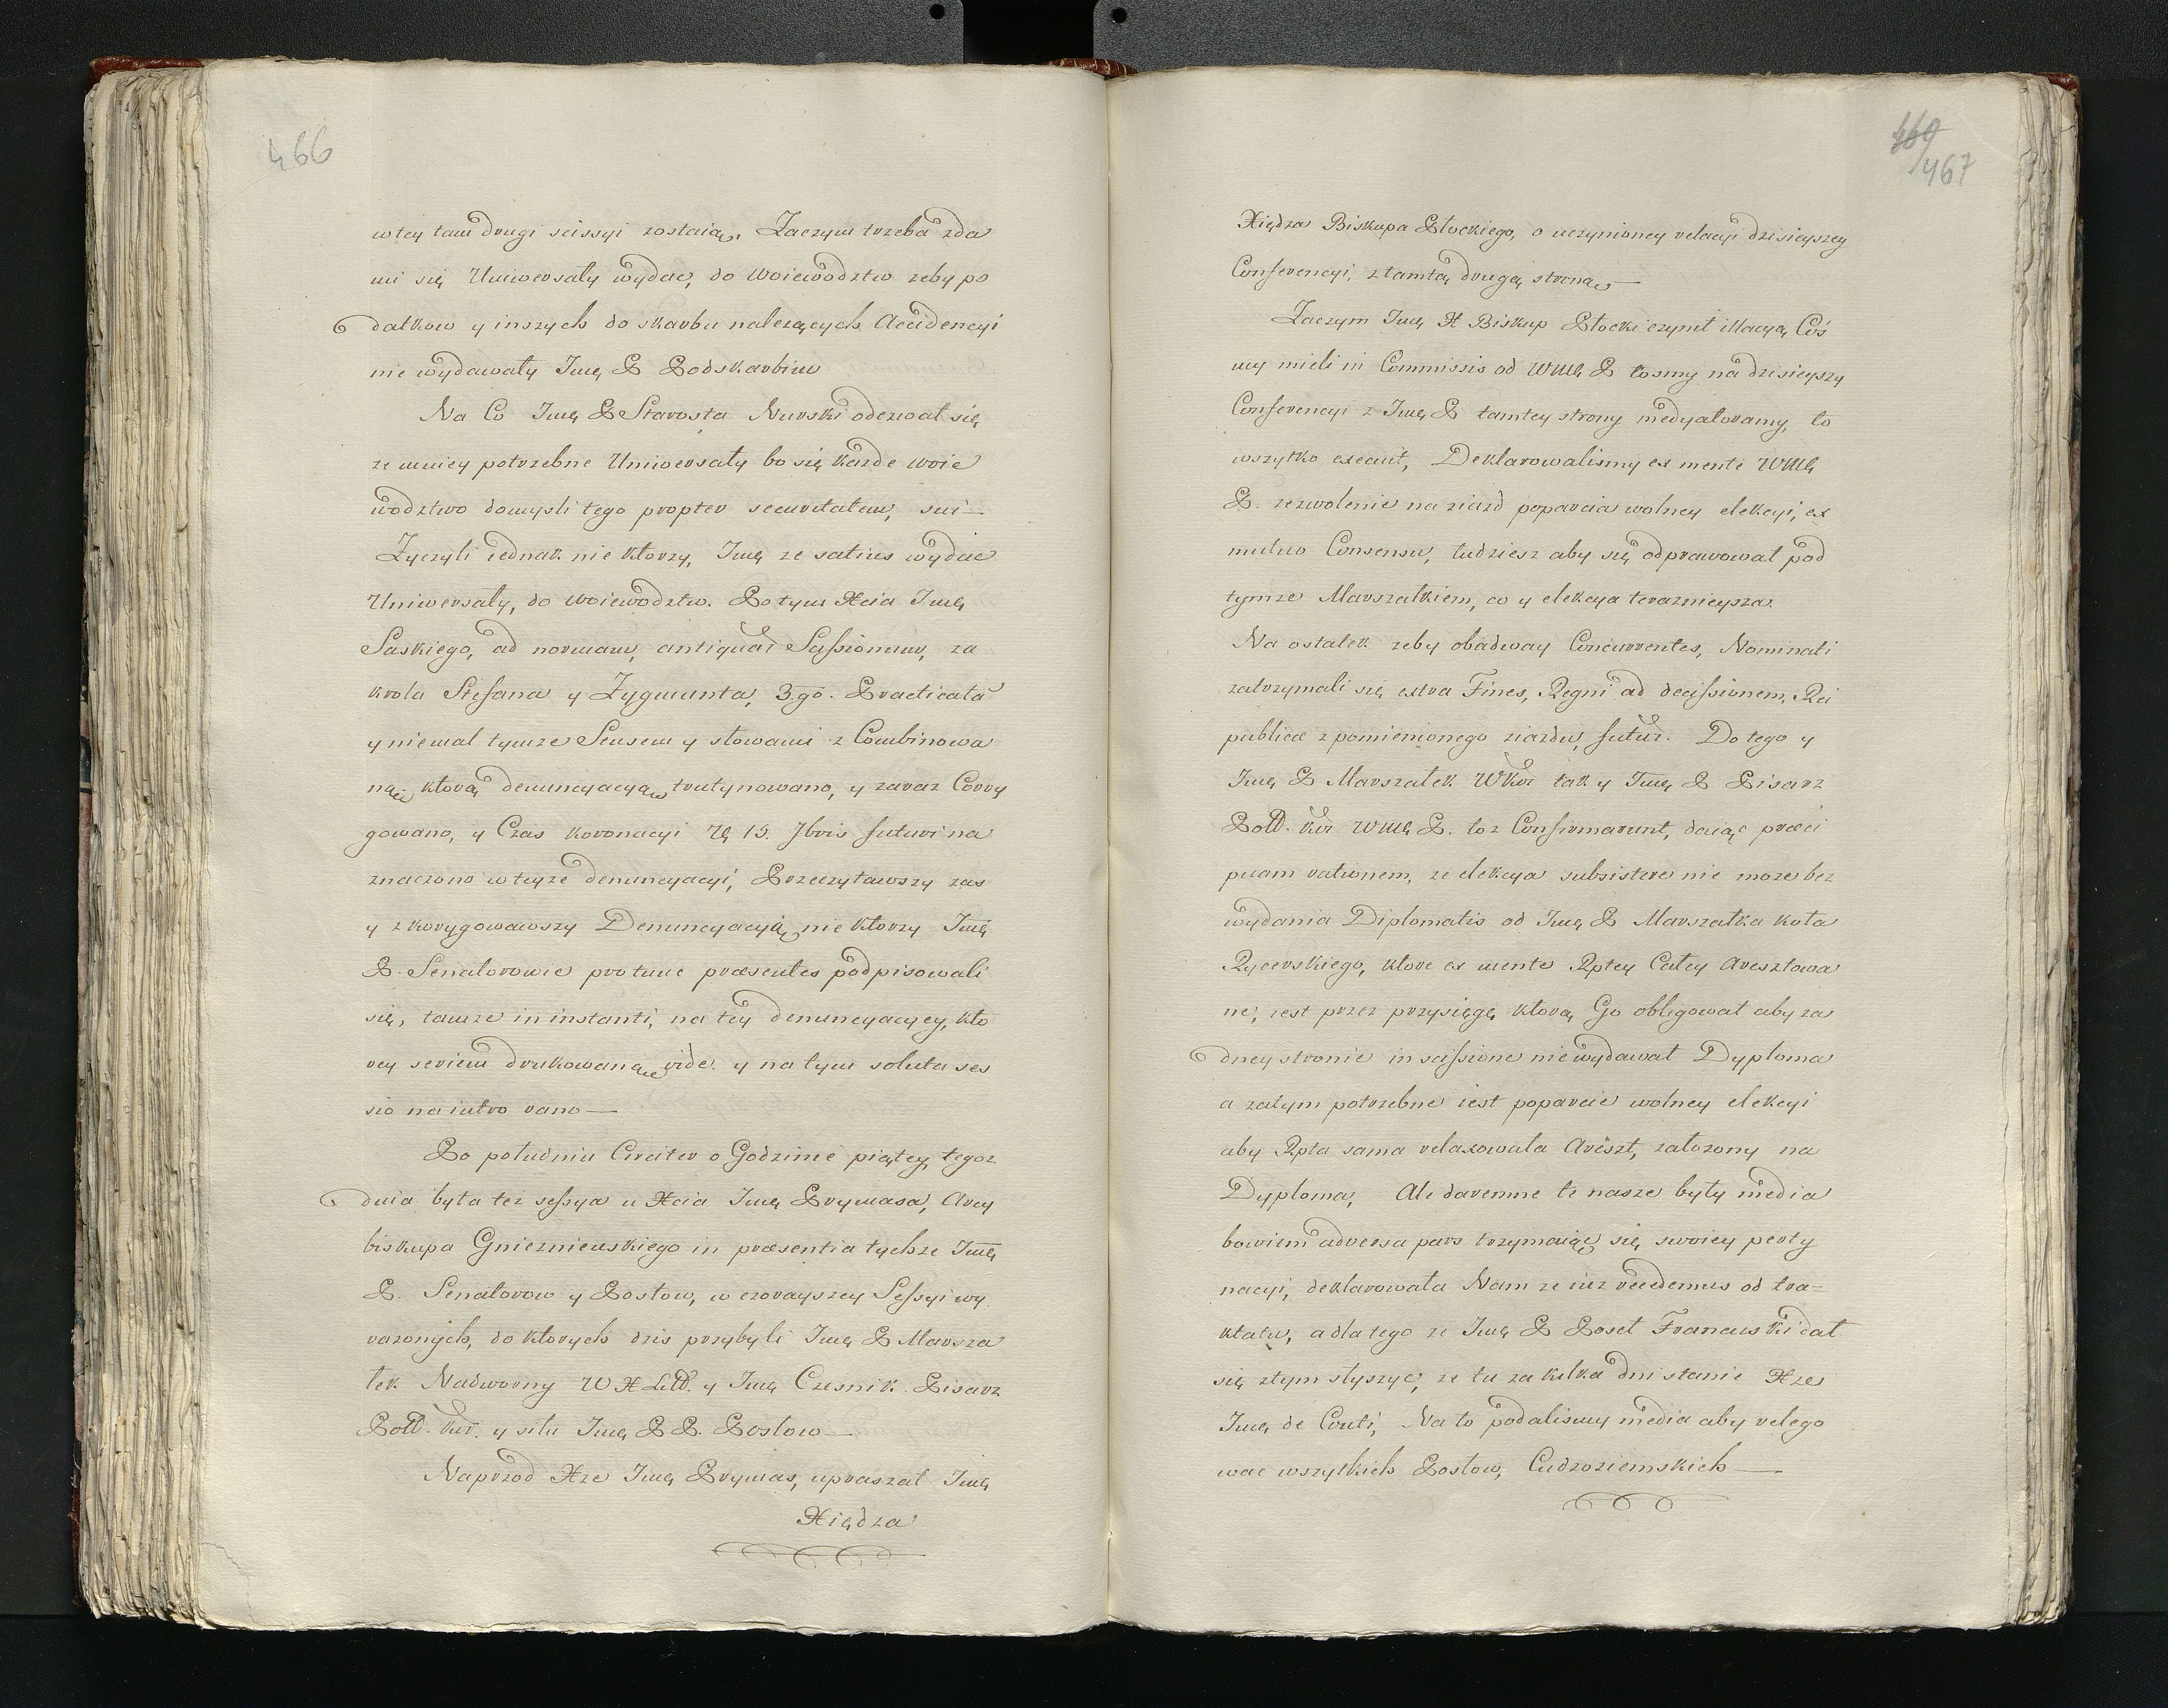 466
w tey tam drugi scissyi zostaią. Zaczym trzeba zda
mi się Uniwersały wydac, do woiewodztw zeby po
datkow y inszych do skarbu nalezących Accidencyi
nie wydawały Jmę P Podskarbim
Na Co Jmę P Starosta Nurski odezwał się
ze mniey potrzebne Uniwersały bo się kazde woie
wodztwo domysli tego propter securitatem, sui —
Zyczyli iednak nie ktorzy, Jmę ze satius wydac
Uniwersały, do woiewodztw. Potym Xcia Jmę
Saskiego, ad normam, antiquar Scissionum, za
krola Stefana y Zygmunta, 3.go. Practicata
y niemal tymze Sensem y słowami z Combinowa
ną ktorą denuncyacyą trutynowano, y zaraz Corry
gowano, y Czas koronacyi Rę 15. 7bris futuri na
znaczono w teyze denuncyacyi, Przeczytawszy zas
y zkorygowawszy Denuncyacyią nie ktorzy Jmę
P. Senatorowie pro tunc præsentes podpisowali
się, tamze in instanti, na tey denuncyacyey, kto
rey seriem drukowaną vide. y na tym soluta ses
sio na iutro rano —
Po południu Circiter o Godzinie piątey, tegoz
dnia była tez sessya u Xcia Jmę Prymasa, Arcy
biskupa Gnieznienskiego in præsentia tychze Jmę
P. Senatorow y Posłow, w czorayszey Sessyi wy
razonych, do ktorych dzis przybyli Jmę P Marsza
łek Nadworny W X Litt. y Jmę Czesnik. Pisarz
Poll. kor. y silu Jmę P P. Posłow —
Naprzod Xze Jmę Prymas, upraszał Jmę
Xiędza
469
467
Xiędza Biskupa Płockiego, o uczynioney relacyi dzisieyszey
Conferencyi, z tamtą drugą stroną —
Zaczym Jmę X Biskup Płocki czynił illacyą Cos
my mieli in Commissis od WMę P tosmy na dzisieyszy
Conferencyi z Jmę P tamtey strony medyatoramy, to
wszytko Deklarowalismy ex mente WMę
P. zezwolenie na ziazd poparcia wolney elekcyi, ex
mutuo Consensu, tudziesz aby się odprawował pod
tymze Marszałkiem, co y elekcya teraznieysza.
Na ostatek zeby obadway Concurrentes, Nominati
zatrzymali się extra Fines, Regni ad decissionem, Rei
publicæ z pomienionego ziazdu, futur. Do tego y
Jmę P Marszałek WKor tak y Jmę P Pisarz
Poll. kor WMę P. toz Confirmarunt, daiąc præci
puam rationem, ze elekcya subsistere nie moze bez
wydania Diplomatis od Jmę P Marszałka koła
Rycerskiego, ktore ex mente Rptey Całey aresztowa
ne, iest przez przysięgę ktorą Go obligował aby za
dney stronie in scissione nie wydawał Dyploma
a zatym potrzebne iest poparcie wolney elekcyi
aby Rpta sama relaxowała Areszt, załozony na
Dyploma, Ale daremne te nasze były media
bowiem adversa pars trzymaiąc się swoiey perty
nacyi, deklarowała Nam ze iuz recedemus od tra=
ktatu, a dla tego ze Jmę P Poseł Francuski dał
się z tym słyszyc, ze tu za kilka dni stanie Xze
Jmę de Conti, Na to podalismy media aby relego
wac wszytkich Posłow, Cudzoziemskich —